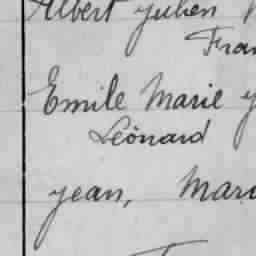 Albert Julien
Fran
Emile Marie
Léonard
Jean, Mari